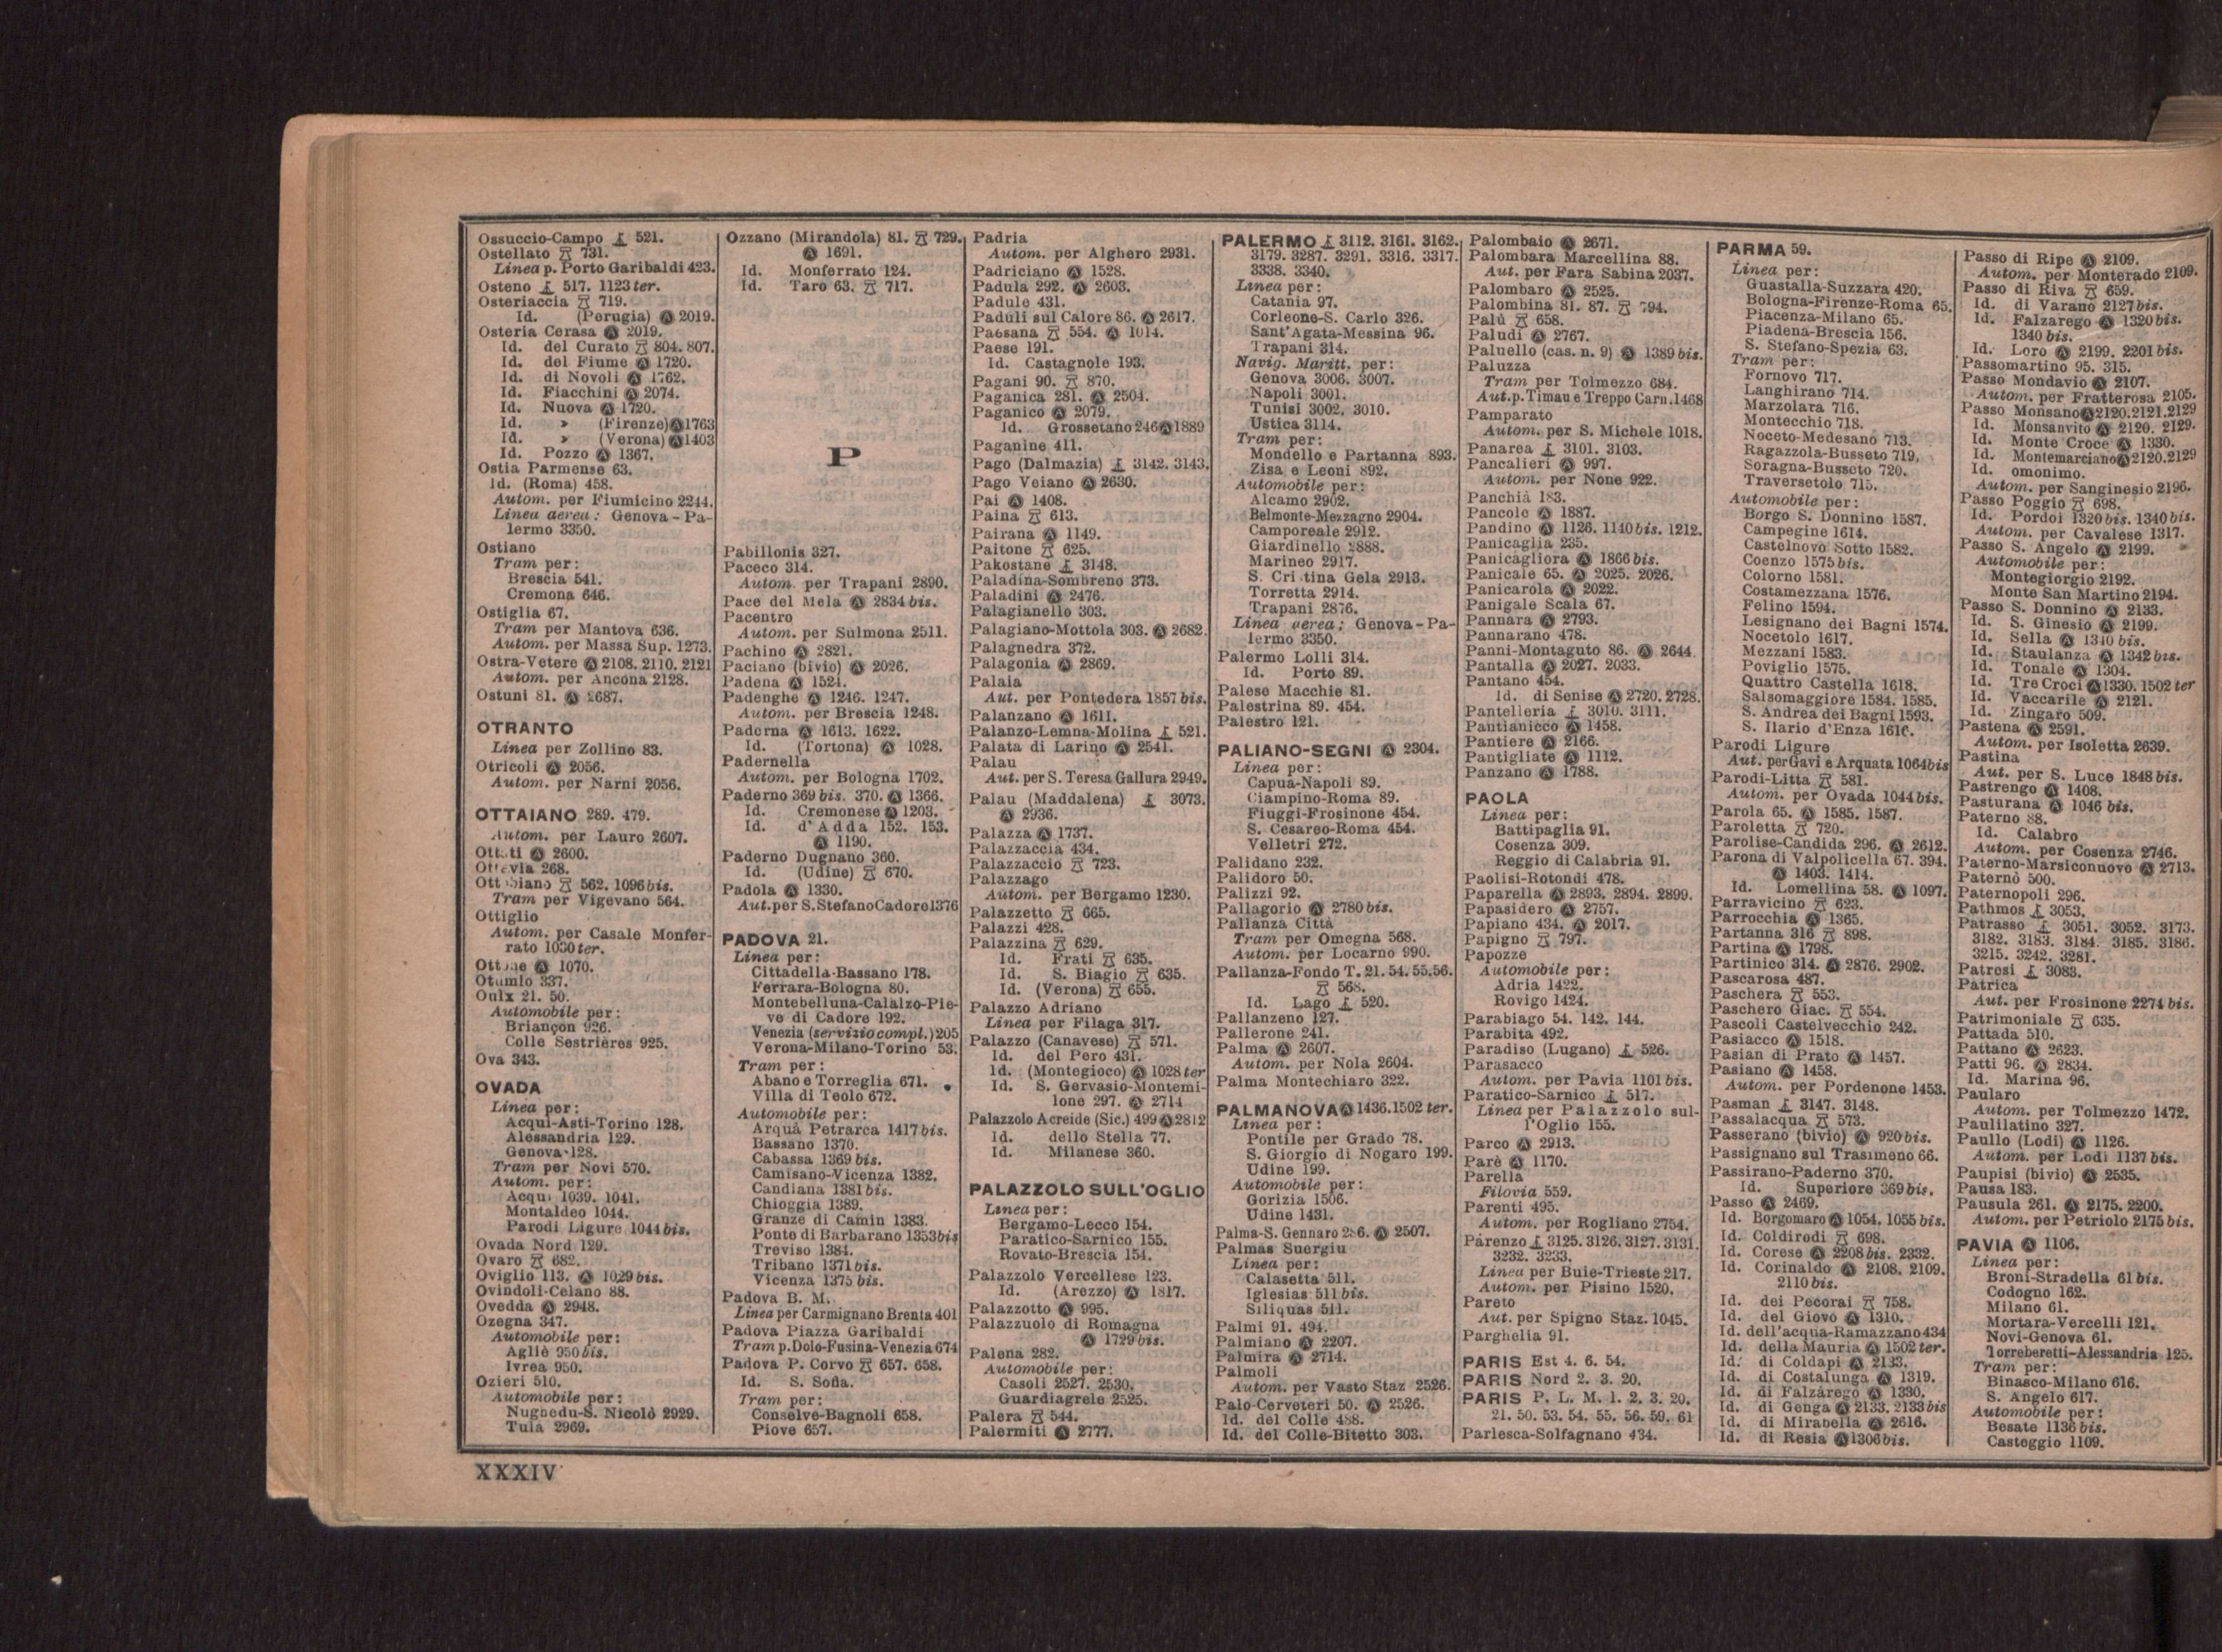 Ossuccio-Campo 521.
Ostellato 731.
Linea p. Porto Garibaldi 423.
Osteno 517. 1123 ter.
Osteriaccia 719.
Id. (Perugia) Ⓐ 2019.
Osteria Cerasa Ⓐ 2019.
Id. del Curato 804. 807.
Id. del Fiume Ⓐ 1720.
Id. di Novoli Ⓐ 1762.
Id. Fiacchini Ⓐ 2074.
Id. Nuova Ⓐ 1720.
Id. » (Firenze) Ⓐ 1763
Id. » (Verona) Ⓐ 1403
Id. Pozzo Ⓐ 1367.
Ostia Parmense 63.
Id. (Roma) 458.
Autom. per Fiumicino 2244.
Linea aerea: Genova-Pa-
lermo 3350.
Ostiano
Tram per:
Brescia 541.
Cremona 646.
Ostiglia 67.
Tram per Mantova 636.
Autom. per Massa Sup. 1273.
Ostra-Vetere Ⓐ 2108. 2110. 2121
Autom. per Ancona 2128.
Ostuni 81. Ⓐ 2687.
OTRANTO
Linea per Zollino 83.
Otricoli Ⓐ 2056.
Autom. per Narni 2056.
OTTAIANO 289. 479.
Autom. per Lauro 2607.
Ⓐ 2600.
Ottavia 268.
Ottobiano 562. 1096 bis.
Tram per Vigevano 564.
Ottiglio
Autom. per Casale Monfer-
rato 1030 ter.
Ottone Ⓐ 1070.
Otumlo 337.
Oulx 21. 50.
Automobile per:
Briançon 926.
Colle Sestrières 925.
Ova 343.
OVADA
Linea per:
Acqui-Asti-Torino 128.
Alessandria 129.
Genova 128.
Tram per Novi 570.
Autom. per:
Acqui 1039. 1041.
Montaldeo 1044.
Parodi Ligure 1044 bis.
Ovada Nord 129.
Ovaro 682.
Oviglio 113. Ⓐ 1029 bis.
Ovindoli-Celano 88.
Ovedda Ⓐ 2948.
Ozegna 347.
Automobile per:
Agliè 950 bis.
Ivrea 950.
Ozieri 510.
Automobile per:
Nughedu-S. Nicolò 2929.
Tula 2969.
Ozzano (Mirandola) 81. 729.
Ⓐ 1691.
Id. Monferrato 124.
Id. Taro 63. 717.
P
Pabillonis 327.
Paceco 314.
Autom. per Trapani 2890.
Pace del Mela Ⓐ 2834 bis.
Pacentro
Autom. per Sulmona 2511.
Pachino Ⓐ 2821.
Paciano (bivio) Ⓐ 2026.
Padena Ⓐ 1524.
Padenghe Ⓐ 1246. 1247.
Autom. per Brescia 1248.
Paderna Ⓐ 1613. 1622.
Id. (Tortona) Ⓐ 1028.
Padernella
Autom. per Bologna 1702.
Paderno 369 bis. 370. Ⓐ 1366.
Id. Cremonese Ⓐ 1203.
Id. d'Adda 152. 153.
Ⓐ 1190.
Paderno Dugnano 360.
Id. (Udine) 670.
Padola Ⓐ 1330.
Aut. per S. Stefano Cadore 1376
PADOVA 21.
Linea per:
Cittadella-Bassano 178.
Ferrara-Bologna 80.
Montebelluna-Calalzo-Pie-
ve di Cadore 192.
Venezia (servizio compl.) 205
Verona-Milano-Torino 53.
Tram per:
Abano e Torreglia 671.
Villa di Teolo 672.
Automobile per:
Arquà Petrarca 1417 bis.
Bassano 1370.
Cabassa 1369 bis.
Camisano-Vicenza 1382.
Candiana 1381 bis.
Chioggia 1389.
Granze di Camin 1383.
Ponte di Barbarano 1353 bis
Treviso 1384.
Tribano 1371 bis.
Vicenza 1375 bis.
Padova B. M.
Linea per Carmignano Brenta 401
Padova Piazza Garibaldi
Tram p. Dolo-Fusina-Venezia 674
Padova P. Corvo 657. 658.
Id. S. Sofia.
Tram per:
Conselve-Bagnoli 658.
Piove 657.
Padria
Autom. per Alghero 2931.
Padriciano Ⓐ 1528.
Padula 292. Ⓐ 2603.
Padule 431.
Paduli sul Calore 86. Ⓐ 2617.
Paesana 554. Ⓐ 1014.
Paese 191.
Id. Castagnole 193.
Pagani 90. 870.
Paganica 281. Ⓐ 2504.
Paganico Ⓐ 2079.
Id. Grossetano 246 Ⓐ 1889
Paganine 411.
Pago (Dalmazia) 3142. 3143.
Pago Veiano Ⓐ 2630.
Pai Ⓐ 1408.
Paina 613.
Pairana Ⓐ 1149.
Paitone 625.
Pakostane 3148.
Paladina-Sombreno 373.
Paladini Ⓐ 2476.
Palagianello 303.
Palagiano-Mottola 303. Ⓐ 2682.
Palagnedra 372.
Palagonia Ⓐ 2869.
Palaia
Aut. per Pontedera 1857 bis.
Palanzano Ⓐ 1611.
Palanzo-Lemna-Molina 521.
Palata di Larino Ⓐ 2541.
Palau
Aut. per S. Teresa Gallura 2949.
Palau (Maddalena) 3073.
Ⓐ 2936.
Palazza Ⓐ 1737.
Palazzaccia 434.
Palazzaccio 723.
Palazzago
Autom. per Bergamo 1230.
Palazzetto 665.
Palazzi 428.
Palazzina 629.
Id. Frati 635.
Id. S. Biagio 635.
Id. (Verona) 655.
Palazzo Adriano
Linea per Filaga 317.
Palazzo (Canavese) 571.
Id. del Pero 431.
Id. (Montegioco) Ⓐ 1028 ter
Id. S. Gervasio-Montemi-
lone 297. Ⓐ 2714
Palazzolo Acreide (Sic.) 499 Ⓐ 2812
Id. dello Stella 77.
Id. Milanese 360.
PALAZZOLO SULL'OGLIO
Linea per:
Bergamo-Lecco 154.
Paratico-Sarnico 155.
Rovato-Brescia 154.
Palazzolo Vercellese 123.
Id. (Arezzo) Ⓐ 1817.
Palazzotto Ⓐ 995.
Palazzuolo di Romagna
Ⓐ 1729 bis.
Palena 282.
Automobile per:
Casoli 2527. 2530.
Guardiagrele 2525.
Palera 544.
Palermiti Ⓐ 2777.
PALERMO 3112. 3161. 3162.
3179. 3287. 3291. 3316. 3317.
3338. 3340.
Linea per:
Catania 97.
Corleone-S. Carlo 326.
Sant'Agata-Messina 96.
Trapani 314.
Navig. Maritt. per:
Genova 3006. 3007.
Napoli 3001.
Tunisi 3002. 3010.
Ustica 3114.
Tram per:
Mondello e Partanna 893.
Zisa e Leoni 892.
Automobile per:
Alcamo 2902.
Belmonte-Mezzagno 2904.
Camporeale 2912.
Giardinello 2888.
Marineo 2917.
S. Cristina Gela 2913.
Torretta 2914.
Trapani 2876.
Linea aerea: Genova-Pa-
lermo 3350.
Palermo Lolli 314.
Id. Porto 89.
Palese Macchie 81.
Palestrina 89. 454.
Palestro 121.
PALIANO-SEGNI Ⓐ 2304.
Linea per:
Capua-Napoli 89.
Ciampino-Roma 89.
Fiuggi-Frosinone 454.
S. Cesareo-Roma 454.
Velletri 272.
Palidano 232.
Palidoro 50.
Palizzi 92.
Pallagorio Ⓐ 2780 bis.
Pallanza Città
Tram per Omegna 568.
Autom. per Locarno 990.
Pallanza-Fondo T. 21. 54. 55. 56.
568.
Id. Lago 520.
Pallanzeno 127.
Pallerone 241.
Palma Ⓐ 2607.
Autom. per Nola 2604.
Palma Montechiaro 322.
PALMANOVA Ⓐ 1436. 1502 ter.
Linea per:
Pontile per Grado 78.
S. Giorgio di Nogaro 199.
Udine 199.
Automobile per:
Gorizia 1506.
Udine 1431.
Palma-S. Gennaro 286. Ⓐ 2507.
Palmas Suergiu
Linea per:
Calasetta 511.
Iglesias 511 bis.
Siliquas 511.
Palmi 91. 494.
Palmiano Ⓐ 2207.
Palmira Ⓐ 2714.
Palmoli
Autom. per Vasto Staz 2526.
Palo-Cerveteri 50. Ⓐ 2526.
Id. del Colle 488.
Id. del Colle-Bitetto 303.
Palombaio Ⓐ 2671.
Palombara Marcellina 88.
Aut. per Fara Sabina 2037.
Palombaro Ⓐ 2525.
Palombina 81. 87. 794.
Palù 658.
Paludi Ⓐ 2767.
Paluello (cas. n. 9) Ⓐ 1389 bis.
Paluzza
Tram per Tolmezzo 684.
Aut. p. Timau e Treppo Carn. 1468
Pamparato
Autom. per S. Michele 1018.
Panarea 3101. 3103.
Pancalieri Ⓐ 997.
Autom. per None 922.
Panchià 183.
Pancole Ⓐ 1887.
Pandino Ⓐ 1126. 1140 bis. 1212.
Panicaglia 235.
Panicagliora Ⓐ 1866 bis.
Panicale 65. Ⓐ 2025. 2026.
Panicarola Ⓐ 2022.
Panigale Scala 67.
Pannara Ⓐ 2793.
Pannarano 478.
Panni-Montaguto 86. Ⓐ 2644
Pantalla Ⓐ 2027. 2033.
Pantano 454.
Id. di Senise Ⓐ 2720. 2728.
Pantelleria 3010. 3111.
Pantianicco Ⓐ 1458.
Pantiere Ⓐ 2166.
Pantigliate Ⓐ 1112.
Panzano Ⓐ 1788.
PAOLA
Linea per:
Battipaglia 91.
Cosenza 309.
Reggio di Calabria 91.
Paolisi-Rotondi 478.
Paparella Ⓐ 2893. 2894. 2899.
Papasidero Ⓐ 2757.
Papiano 434. Ⓐ 2017.
Papigno 797.
Papozze
Automobile per:
Adria 1422.
Rovigo 1424.
Parabiago 54. 142. 144.
Parabita 492.
Paradiso (Lugano) 526.
Parasacco
Autom. per Pavia 1101 bis.
Paratico-Sarnico 517.
Linea per Palazzolo sul-
l'Oglio 155.
Parco Ⓐ 2913.
Parè Ⓐ 1170.
Parella
Filovia 559.
Parenti 495.
Autom. per Rogliano 2754.
Parenzo 3125. 3126. 3127. 3131.
3232. 3233.
Linea per Buie-Trieste 217.
Autom. per Pisino 1520.
Pareto
Aut. per Spigno Staz. 1045.
Parghelia 91.
PARIS Est 4. 6. 54.
PARIS Nord 2. 3. 20.
PARIS P. L. M. 1. 2. 3. 20.
21. 50. 53. 54. 55. 56. 59. 61
Parlesca-Solfagnano 434.
PARMA 59.
Linea per:
Guastalla-Suzzara 420.
Bologna-Firenze-Roma 65.
Piacenza-Milano 65.
Piadena-Brescia 156.
S. Stefano-Spezia 63.
Tram per:
Fornovo 717.
Langhirano 714.
Marzolara 716.
Montecchio 718.
Noceto-Medesano 713.
Ragazzola-Busseto 719.
Soragna-Busseto 720.
Traversetolo 715.
Automobile per:
Borgo S. Donnino 1587.
Campegine 1614.
Castelnovo Sotto 1582.
Coenzo 1575 bis.
Colorno 1581.
Costamezzana 1576.
Felino 1594.
Lesignano dei Bagni 1574.
Nocetolo 1617.
Mezzani 1583.
Poviglio 1575.
Quattro Castella 1618.
Salsomaggiore 1584. 1585.
S. Andrea dei Bagni 1593.
S. Ilario d'Enza 1616.
Parodi Ligure
Aut. per Gavi e Arquata 1064 bis
Parodi-Litta 581.
Autom. per Ovada 1044 bis.
Parola 65. Ⓐ 1585. 1587.
Paroletta 720.
Parolise-Candida 296. Ⓐ 2612.
Parona di Valpolicella 67. 394.
Ⓐ 1403. 1414.
Id. Lomellina 58. Ⓐ 1097.
Parravicino 623.
Parrocchia Ⓐ 1365.
Partanna 316 898.
Partina Ⓐ 1798.
Partinico 314. Ⓐ 2876. 2902.
Pascarosa 487.
Paschera 553.
Paschero Giac. 554.
Pascoli Castelvecchio 242.
Pasiacco Ⓐ 1518.
Pasian di Prato Ⓐ 1457.
Pasiano Ⓐ 1458.
Autom. per Pordenone 1453.
Pasman 3147. 3148.
Passalacqua 573.
Passerano (bivio) Ⓐ 920 bis.
Passignano sul Trasimeno 66.
Passirano-Paderno 370.
Id. Superiore 369 bis.
Passo Ⓐ 2469.
Id. Borgomaro Ⓐ 1054. 1055 bis.
Id. Coldirodi 698.
Id. Corese Ⓐ 2208 bis. 2332.
Id. Corinaldo Ⓐ 2108. 2109.
2110 bis.
Id. dei Pecorai 758.
Id. del Giovo Ⓐ 1310.
Id. dell'acqua-Ramazzano 434
Id. della Mauria Ⓐ 1502 ter.
Id. di Coldapi Ⓐ 2133.
Id. di Costalunga Ⓐ 1319.
Id. di Falzàrego Ⓐ 1330.
Id. di Genga Ⓐ 2133. 2133 bis
Id. di Mirabella Ⓐ 2616.
Id. di Resia Ⓐ 1306 bis.
Passo di Ripe Ⓐ 2109.
Autom. per Monterado 2109.
Passo di Riva 659.
Id. di Varano 2127 bis.
Id. Falzarego Ⓐ 1320 bis.
1340 bis.
Id. Loro Ⓐ 2199. 2201 bis.
Passomartino 95. 315.
Passo Mondavio Ⓐ 2107.
Autom. per Fratterosa 2105.
Passo Monsano Ⓐ 2120. 2121. 2129
Id. Monsanvito Ⓐ 2120. 2129.
Id. Monte Croce Ⓐ 1330.
Id. Montemarciano Ⓐ 2120. 2129
Id. omonimo.
Autom. per Sanginesio 2196.
Passo Poggio 698.
Id. Pordoi 1320 bis. 1340 bis.
Autom. per Cavalese 1317.
Passo S. Angelo Ⓐ 2199.
Automobile per:
Montegiorgio 2192.
Monte San Martino 2194.
Passo S. Donnino Ⓐ 2133.
Id. S. Ginesio Ⓐ 2199.
Id. Sella Ⓐ 1310 bis.
Id. Staulanza Ⓐ 1342 bis.
Id. Tonale Ⓐ 1304.
Id. Tre Croci Ⓐ 1330. 1502 ter
Id. Vaccarile Ⓐ 2121.
Id. Zingaro 509.
Pastena Ⓐ 2591.
Autom. per Isoletta 2639.
Pastina
Aut. per S. Luce 1848 bis.
Pastrengo Ⓐ 1408.
Pasturana Ⓐ 1046 bis.
Paterno 88.
Id. Calabro
Autom. per Cosenza 2746.
Paterno-Marsiconuovo Ⓐ 2713.
Paternò 500.
Paternopoli 296.
Pathmos 3053.
Patrasso 3051. 3052. 3173.
3182. 3183. 3184. 3185. 3186.
3215. 3242. 3281.
Patresi 3083.
Patrica
Aut. per Frosinone 2274 bis.
Patrimoniale 635.
Pattada 510.
Pattano Ⓐ 2623.
Patti 96. Ⓐ 2834.
Id. Marina 96.
Paularo
Autom. per Tolmezzo 1472.
Paulilatino 327.
Paullo (Lodi) Ⓐ 1126.
Autom. per Lodi 1137 bis.
Paupisi (bivio) Ⓐ 2535.
Pausa 183.
Pausula 261. Ⓐ 2175. 2200.
Autom. per Petriolo 2175 bis.
PAVIA Ⓐ 1106.
Linea per:
Broni-Stradella 61 bis.
Codogno 162.
Milano 61.
Mortara-Vercelli 121.
Novi-Genova 61.
Torreberetti-Alessandria 125.
Tram per:
Binasco-Milano 616.
S. Angelo 617.
Automobile per:
Besate 1136 bis.
Casteggio 1109.
XXXIV